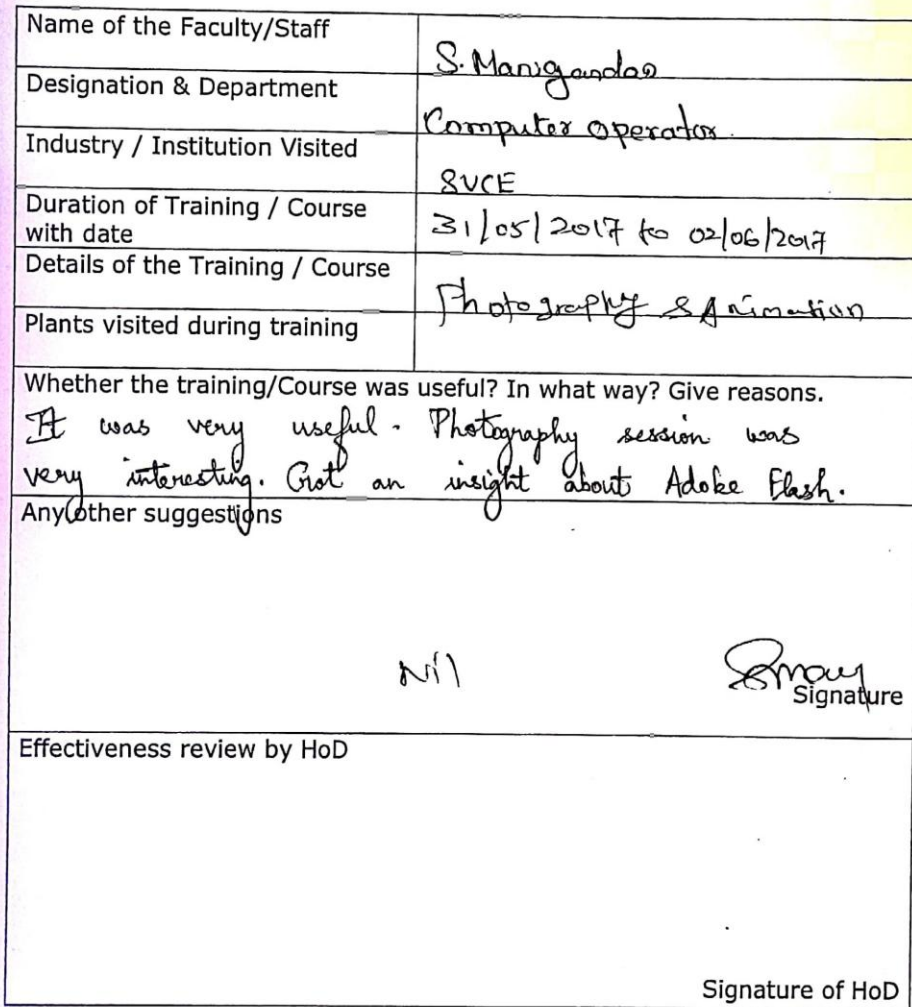 Name of the Faculty/Staff
S. Manigandan
Designation & Department
Computer operator.
Industry / Institution Visited
SVCE
Duration of Training / Course
with date
31/05/2017 to 02/06/2017
Details of the Training / Course
Photography & Animation
Plants visited during training
Whether the training/Course was useful? In what way? Give reasons.
It was very useful. Photography session was
very interesting. Got an insight about Adobe Flash.
Any other suggestions
Nil
Signature
Effectiveness review by HoD
Signature of HoD